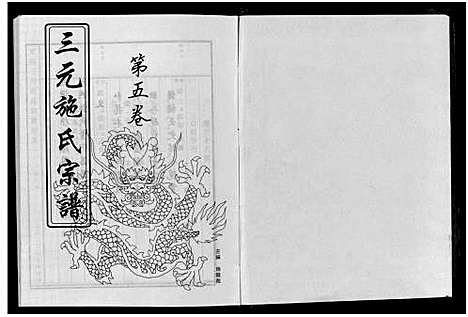 三元施氏宗譜
第五卷
主編